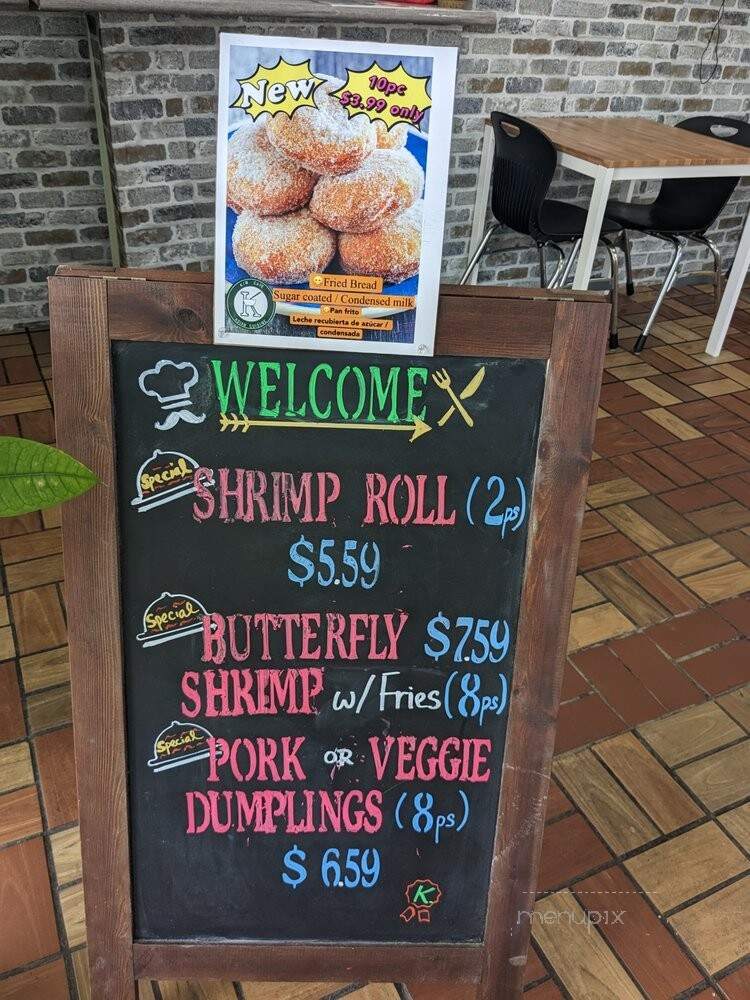 New
10pc
$3.99 only
Fried Bread
Sugar coated / Condensed milk
Pan frito
Leche recubierta de azúcar /
condensada
K
WELCOME
Special
SHRIMP ROLL (2ps)
$5.59
Special
BUTTERFLY $7.59
SHRIMP w/Fries (8ps)
Special
PORK OR VEGGIE
DUMPLINGS (8ps)
$6.59
K
menupix